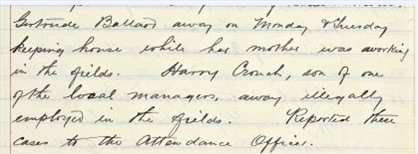 Gertrude Ballard away on Monday & Tuesday
keeping house while her mother was working
in the fields. Harry Crouch, son of one
of the local managers, away illegally
employed in the fields. Reported these
cases to the Attendance Officer.